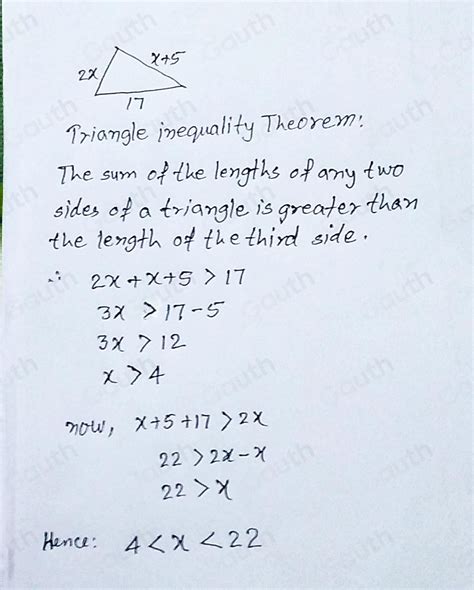 2x
x+5
17
Triangle inequality Theorem:
The sum of the lengths of any two
sides of a triangle is greater than
the length of the third side.
∴ 2x+x+5 > 17
3x > 17-5
3x > 12
x > 4
now, x+5+17 > 2x
22 > 2x-x
22 > x
Hence: 4 < x < 22